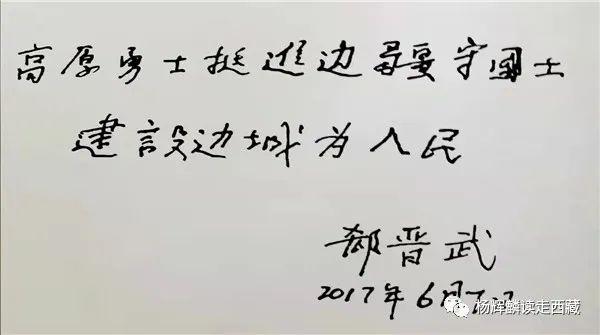 高原勇士挺進边疆守國土
建設边城为人民
郄晋武
2017年6月
杨辉麟读走西藏